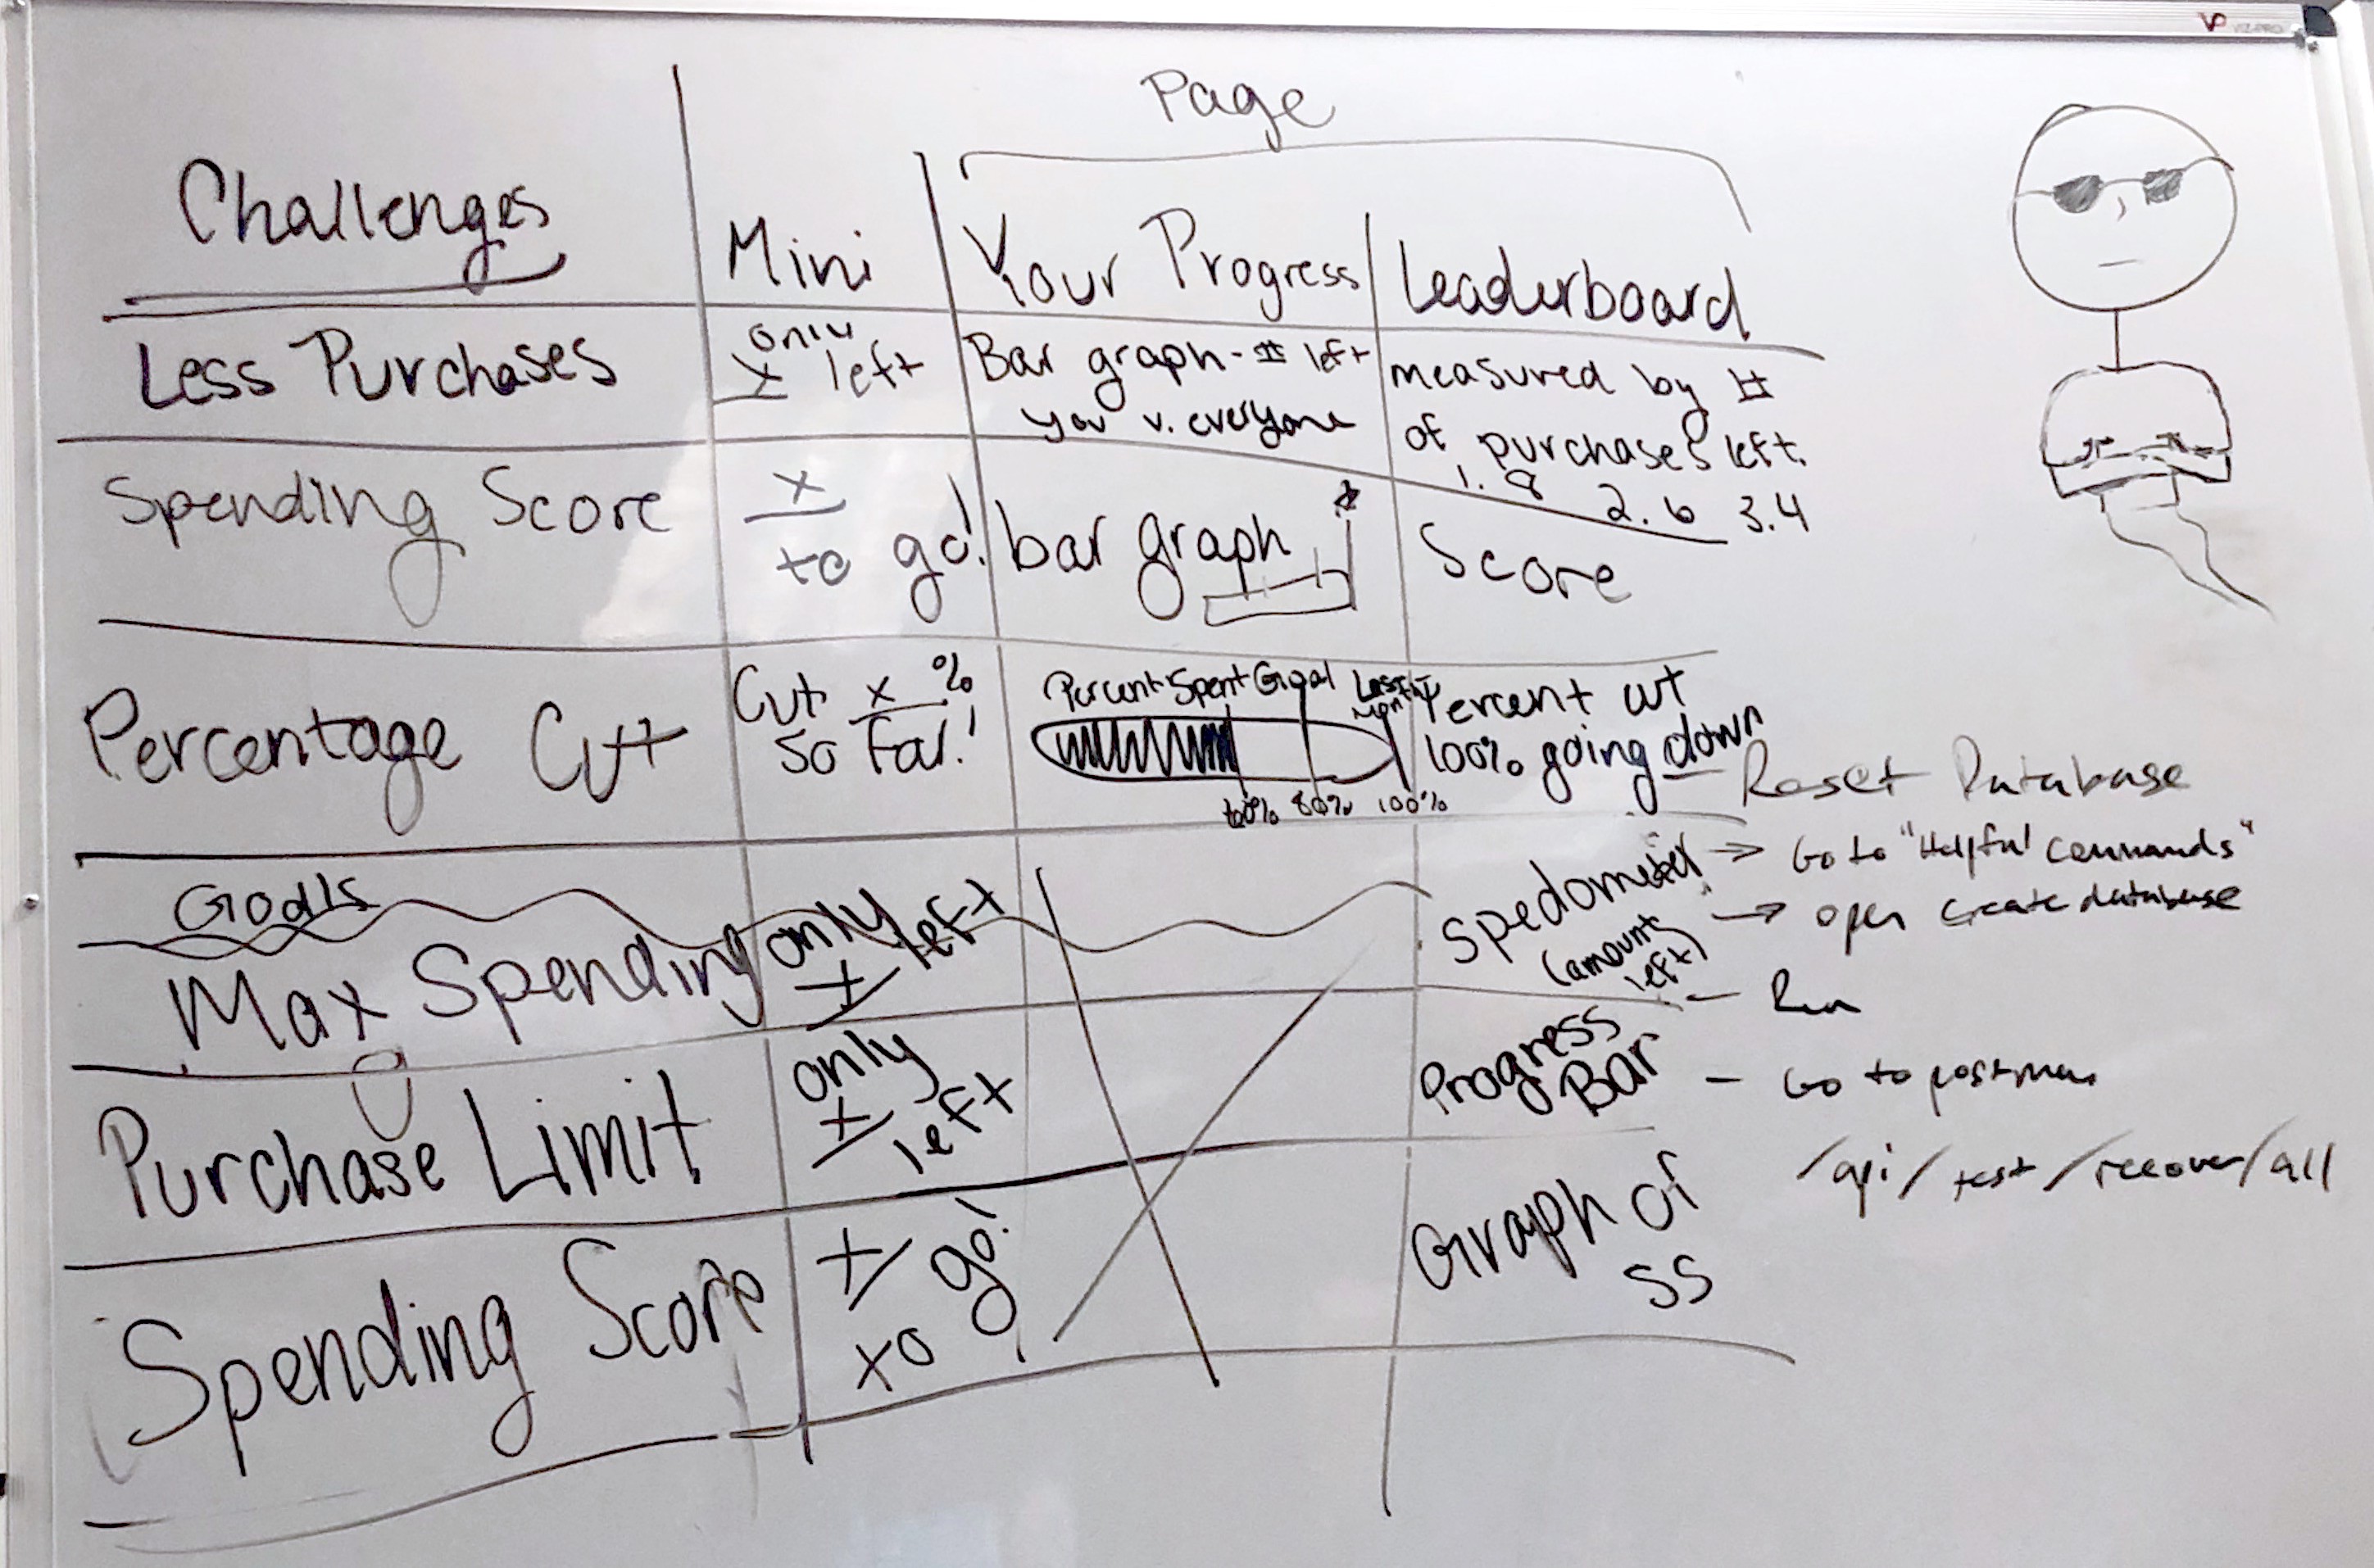 Page
Challenges
Mini
Your Progress
Leaderboard
Less Purchases
only
x left
Bar graph - # left
you v. everyone
measured by #
of purchases left.
1. 8 2. 6 3. 4
Spending Score
x
to go!
bar graph
Score
Percentage Cut
Cut x %
so far!
Percent Spent Goal Last Month
80% 100%
Percent cut
100% going down
Goals
Max Spending
only
x left
Spedometer
(amount
left)
Purchase Limit
only
x left
Progress
Bar
Spending Score
x
to go!
Graph of
SS
- Reset Database
→ Go to "Helpful Commands"
→ open create database
- Run
- Go to postman
/api/test/recover/all